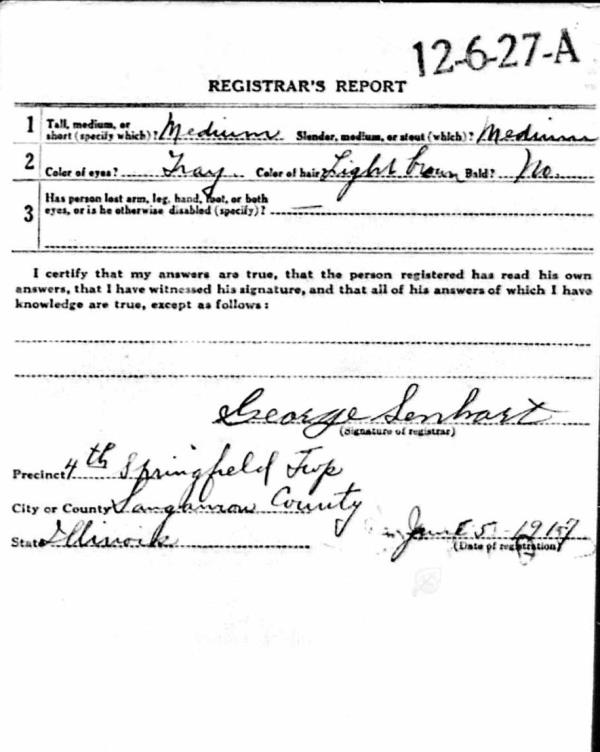 12-6-27-A
REGISTRAR'S REPORT
1 Tall, medium, or short (specify which)? Medium Slender, medium, or stout (which)? Medium
2 Color of eyes? Gray Color of hair? Light brown Bald? No
3 Has person lost arm, leg, hand, foot, or both
eyes, or is he otherwise disabled (specify)? —
I certify that my answers are true, that the person registered has read his own
answers, that I have witnessed his signature, and that all of his answers of which I have
knowledge are true, except as follows:
George Lenhart
(Signature of registrar)
Precinct 4th Springfield Twp
City or County Sangamon County
State Illinois June 5 - 1917
(Date of registration)